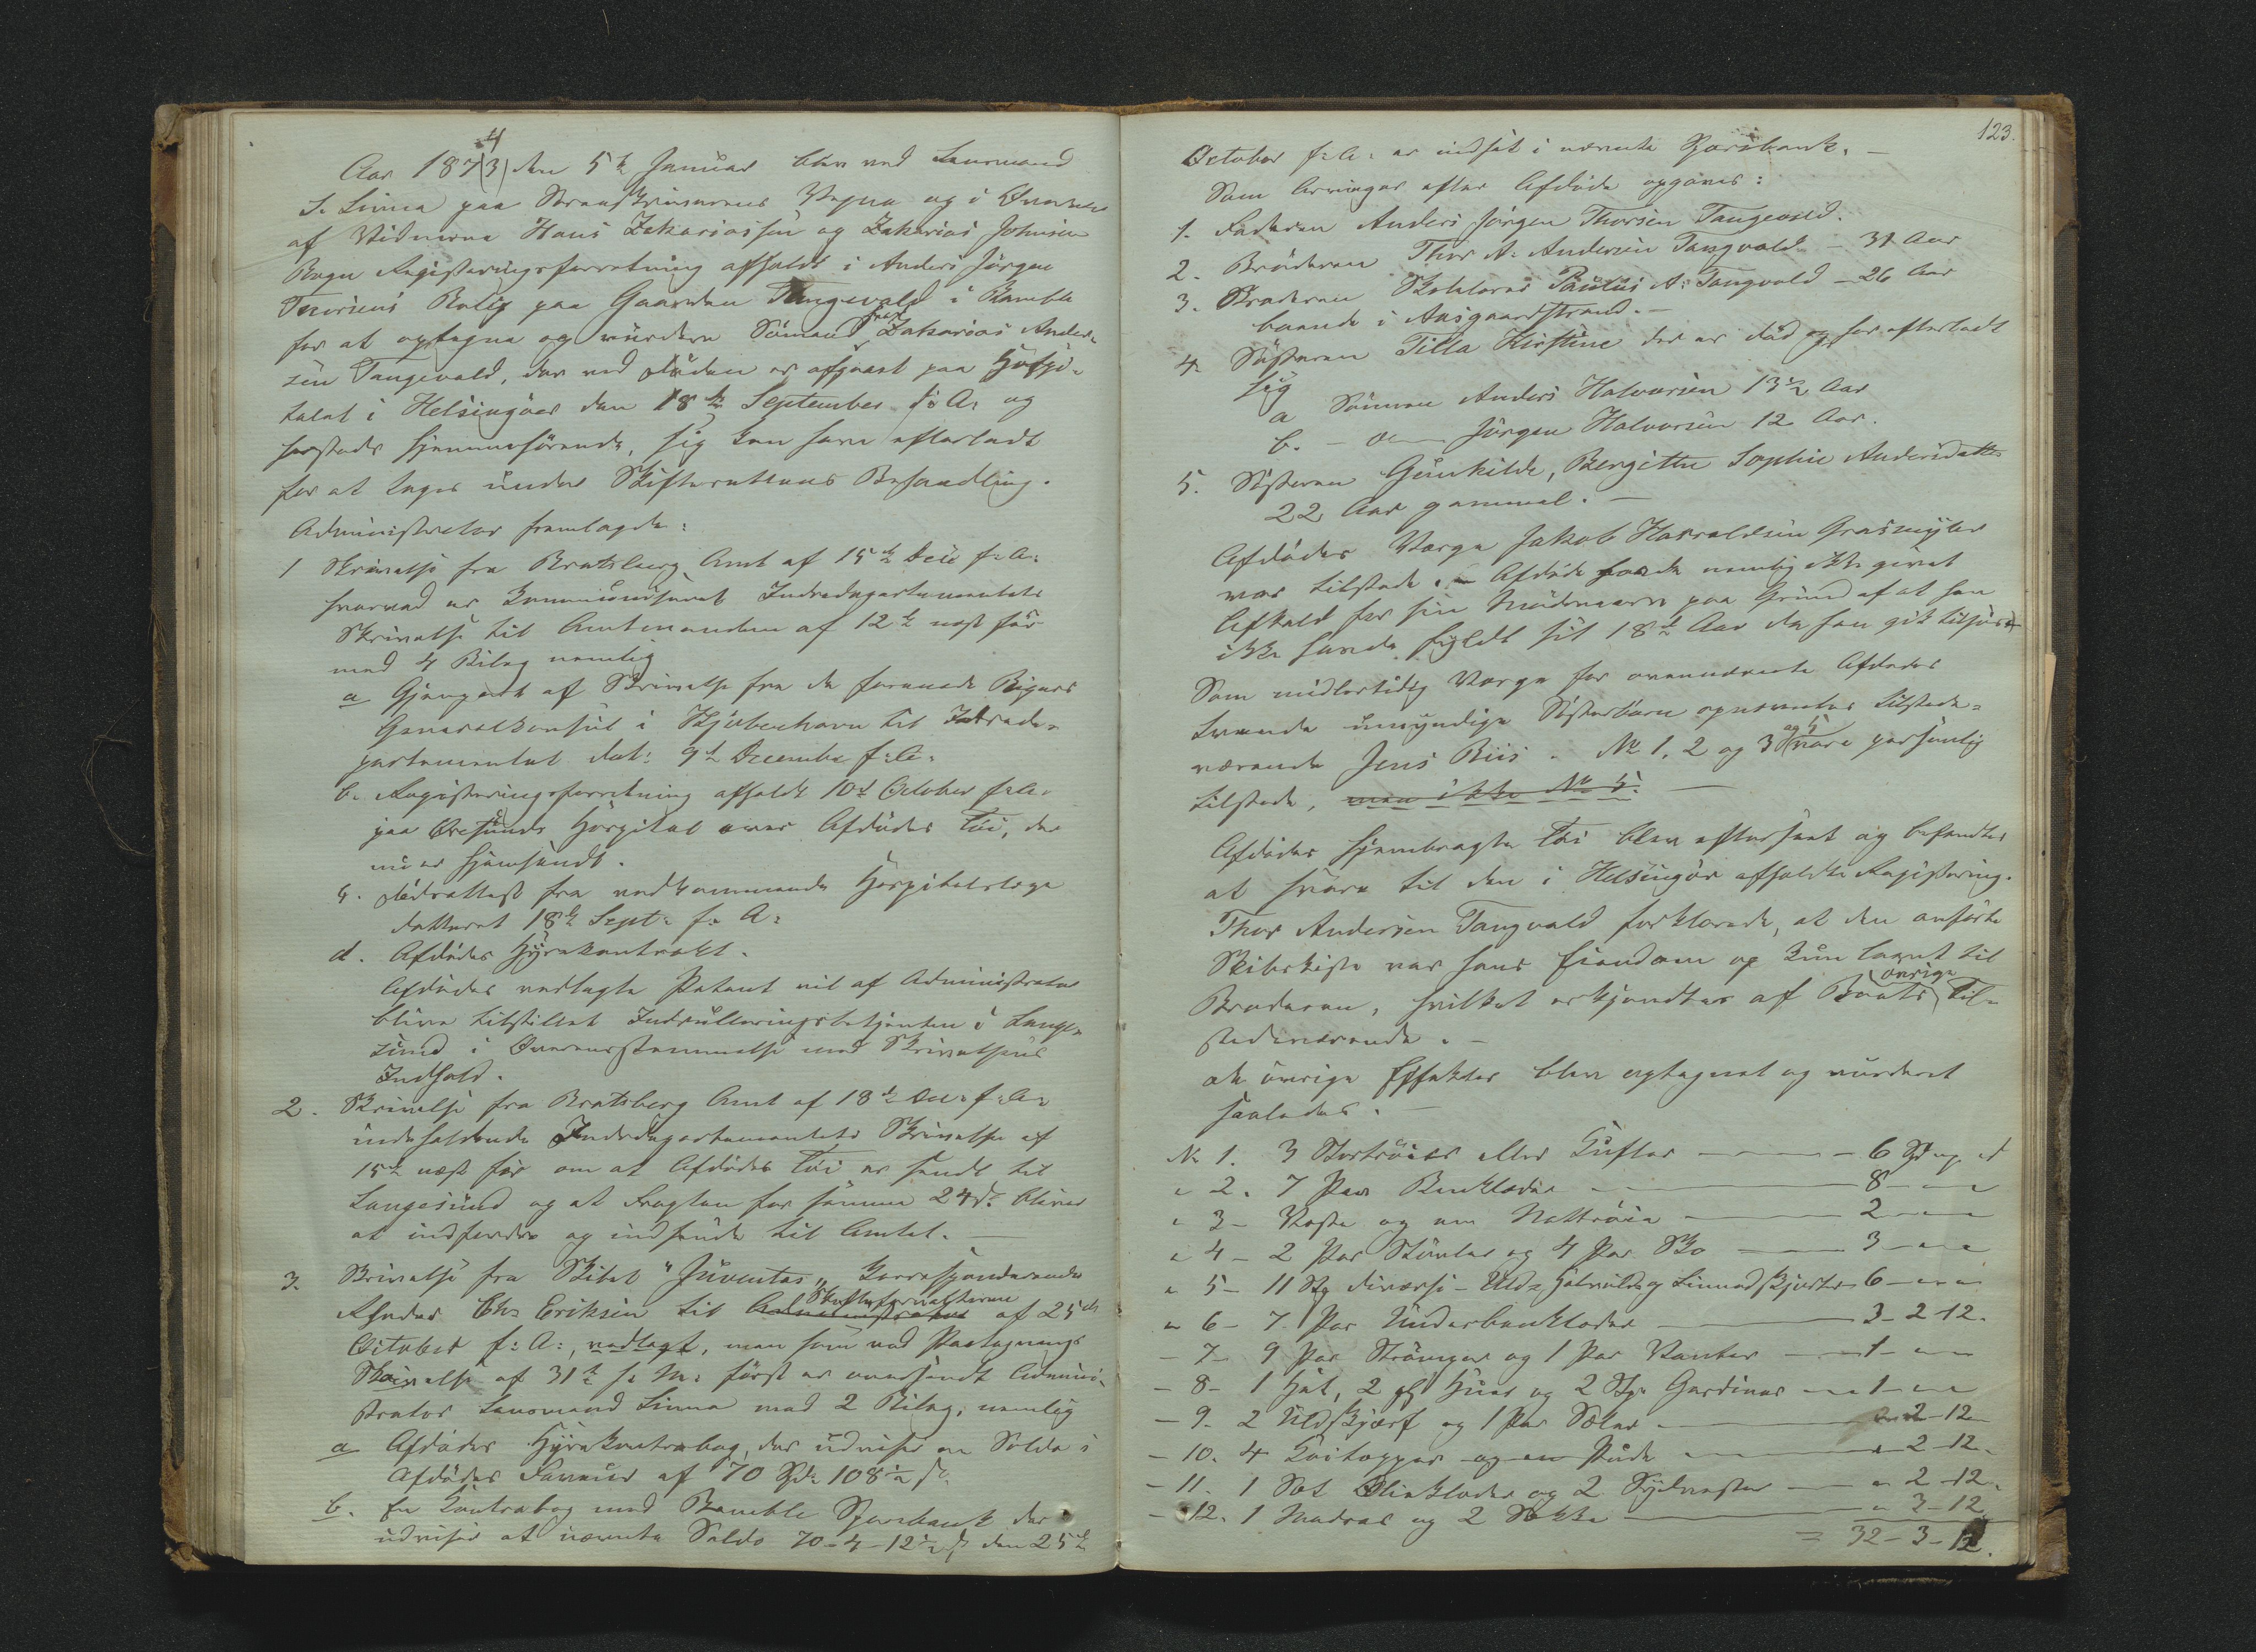 4
Aar 187(3) den 5te Januar blev ved Lensmand
S. Linna paa Sorenskriverens Vegne og i Overvær
af Vidnerne Hans Zakariassen og Zakarias Johnsen
Bugn Registreringsforretning afholdt i Anders Jörgen
Thorsens Bolig paa Gaarden Tangevald i Bamble
for at optegne og vurdere Sömand Zakarias Ander-
sen Tangevald, der ved Döden er afgaaet paa Hospi-
talet i Helsingöer den 18de September f: A: og
forstods hjemmehörende, sig kan have efterladt
for at tages under Skifterettens Behandling.
Administrator fremlagde:
1 Skrivelse fra Bratsberg Amt af 15de Dec f: A:
hvorved er kommuniseret Indredepartementets
Skrivelse til Amtmanden af 12te næst för
med 4 Bilag nemlig
a Gjenpart af Skrivelse fra de forenede Rigers
Generalkonsul i Kjöbenhavn til Indrede-
partementet dat: 9de December f: A:
b. Registreringsforretning afholdt 10de October f: A:
paa Öresunds Hospital over Afdödes Töi, der
nu er hjemsendt.
c. Dödsattest fra vedkommende Hospitalslæge
datteret 18de Sept: f: A:
d. Afdödes Hyrekontrakt.
Afdödes vedlagte Patent vil af Administrator
blive tilstillet Indrulleringsbetjenten i Lange-
sund i Overensstemmelse med Skrivelsens
Indhold.
2. Skrivelse fra Bratsberg Amt af 18de Dec: f: A:
indeholdende Indredepartementets Skrivelse af
15de næst för om at Afdödes Töi er sendt til
Langesund og at Fragten for samme 24 s. bliver
at indfordre og indsende til Amtet. —
3. Skrivelse fra Skibet "Juventas" Korresponderende
Skifteforvalteren
Rheder Chr Eriksen til Administrator af 25de
October f: A:, vedlagt, men som ved Paategnings
Skrivelse af 31te s: M: först er oversendt Admini-
strator Lensmand Linna med 2 Bilag, nemlig
a Afdödes Hyrekontrabog, der udviser en Saldo i
Afdödes Faveur af 70 Spd: 108½ s
b. En Kontrabog med Bamble Sparebank der
udviser at nævnte Saldo 70-4-12½ s den 25de
123.
October f: A: er indsat i nævnte Sparebank. —
Som Arvinger efter Afdöde opgaves:
1. Faderen Anders Jörgen Thorsen Tangevald.
2. Broderen Thor A. Andersen Tangvald — 31 Aar
3. Broderen Skolelærer Paulus A: Tangvald — 26 Aar
boende i Aasgaardstrand. —
4. Sösteren Tilla Kirstine der er död og har efterladt
sig
a Sönnen Anders Halvorsen 13½ Aar
b. — do — Jörgen Halvorsen 12 Aar.
5. Sösteren Gunhilde, Bergitte Sophie Andersdatter
22 Aar gammel. —
Afdödes Værge Jakob Haraldsen Grasmyher
var tilstede. — Afdöde havde nemlig ikke givet
Afkald for sin Mödrenearv paa Grund af at han
ikke havde fyldt sit 18de Aar da han gik tilsjös
Som midlertidig Værge for ovennævnte Afdödes
tvende umyndige Sösterbörn opnævntes tilstede-
og 5
værende Jens Riis. No 1, 2 og 3 vare personlig
tilstede, men ikke No 5. —
Afdödes hjembragte Töi blev efterseet og befandtes
at svare til den i Helsingör afholdte Registrering.
Thor Andersen Tangvald forklarede, at den anförte
Skibskiste var hans Eiendom og kun laant til
övrige
Broderen, hvilket erkjendtes af Boets Til-
stedeværende. —
De övrige Effekter blev optegnet og vurderet
saaledes. —
No 1. 3 Stortröier eller Kufter — 6 Spd " ort
" 2. 7 Par Benklæder — 8 — " "
" 3 — Veste og en Nattröie — 2 — " "
" 4 — 2 Par Stövler og 4 Par Sko — 3 — " "
" 5 — 11 Stk diverse — Uld- Halvuld og Linnedskjorter 6 — " "
" 6 — 7 Par Underbenklæder — 3-2-12.
— 7 — 9 Par Strömper og 1 Par Vanter — 1 — " "
— 8 — 1 Hat, 2 Huer og 2 Stk Gardiner — 1 — "
— 9. 2 Uldskjærf og 1 Par Sæler — " 2-12
— 10. 4 Köitepper og en Pude — " 2-12.
— 11. 1 Sæt Olieklæder og 2 Sydvester — " 2-12.
— 12. 1 Madras og 2 Sække — " 3-12
= 32-3-12.